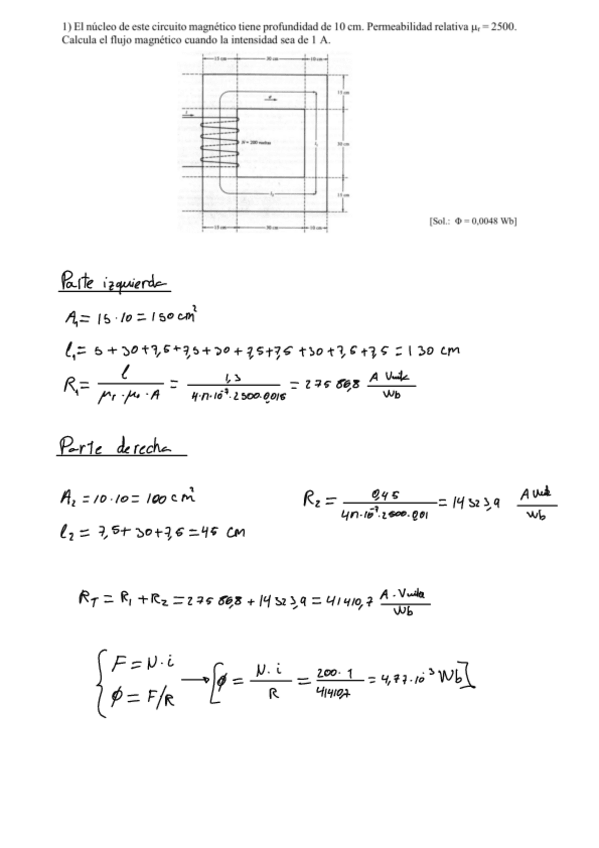 1) El núcleo de este circuito magnético tiene profundidad de 10 cm. Permeabilidad relativa μr = 2500.
Calcula el flujo magnético cuando la intensidad sea de 1 A.
15 cm 30 cm 10 cm
15 cm
N = 200 vueltas
30 cm
15 cm
15 cm 30 cm 10 cm
[Sol.: Φ = 0,0048 Wb]
Parte izquierda
A₁ = 15 · 10 = 150 cm²
l₁ = 5 + 30 + 7,5 + 7,5 + 30 + 7,5 + 7,5 + 30 + 7,5 + 7,5 = 130 cm
R₁ = l / μr · μo · A = 1,3 / 4·π·10⁻⁷·2500·0,015 = 27586,8 A Vuelta / Wb
Parte derecha
A₂ = 10 · 10 = 100 cm²
R₂ = 0,45 / 4π·10⁻⁷·2500·0,01 = 14323,9 A Vuelt / Wb
l₂ = 7,5 + 30 + 7,5 = 45 cm
RT = R₁ + R₂ = 27586,8 + 14323,9 = 41410,7 A·Vuelta / Wb
F = N · i
ϕ = F/R
→ [ϕ = N · i / R = 200 · 1 / 41410,7 = 4,77 · 10⁻³ Wb]